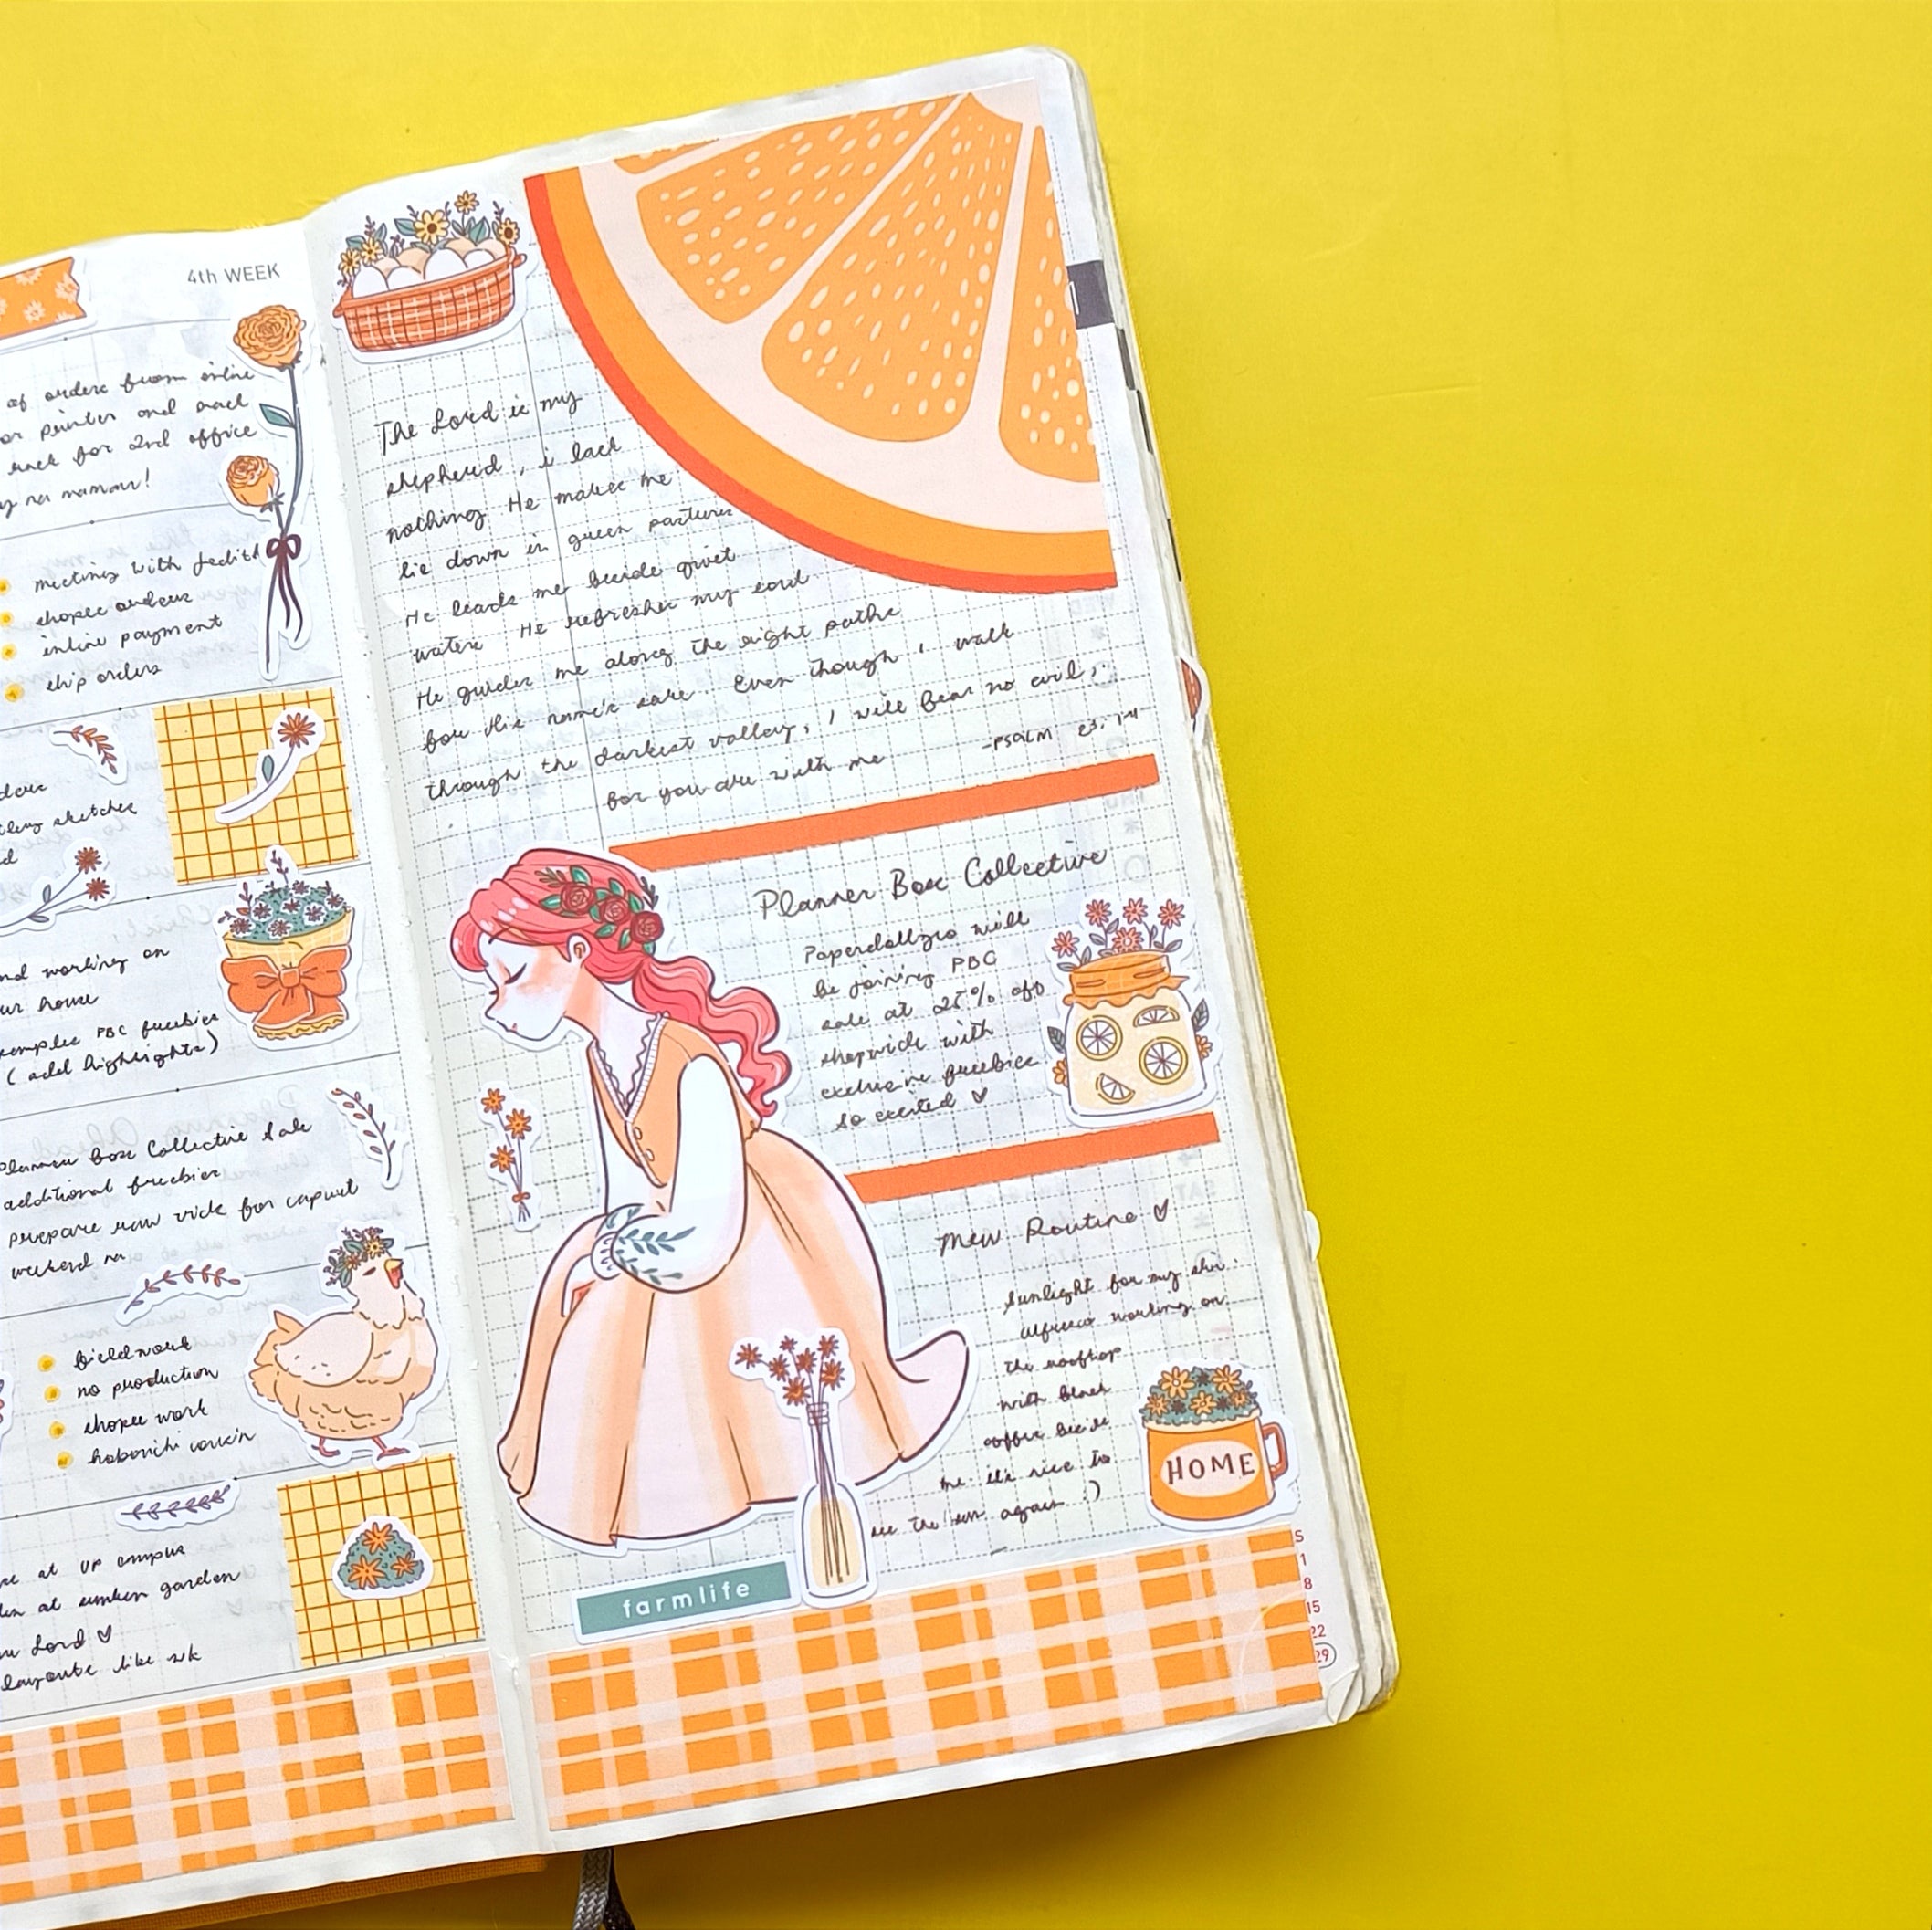 4th WEEK
of orders from inline
or printer and
rack for 2nd office
na naman!
meeting with
shopee orders
inline payment
ship orders
sketches
nd working on
ur house
PBC freebies
(add highlights)
Planner Box Collective Sale
additional freebies
prepare raw vids for capcut
weekend na
fieldwork
no production
shopee work
hobonichi
at UP campus
at sunken garden
Lord ♡
layouts like wk
The Lord is my
shepherd, i lack
nothing He makes me
lie down in green pastures
He leads me beside quiet
waters He refreshes my soul
He guides me along the right paths
for His name's sake. Even though I walk
through the darkest valley, I will fear no evil,
for you are with me
-PSALM 23:1-4
Planner Box Collective
Paperdollzco will
be joining PBC
sale at 25% off
shopwide with
exclusive freebies
so excited ♡
New Routine ♡
Sunlight for my
alfresco working on
the rooftop
with black
coffee beside
me it's nice to
see the sun again :)
HOME
farmlife
S
1
8
15
22
29